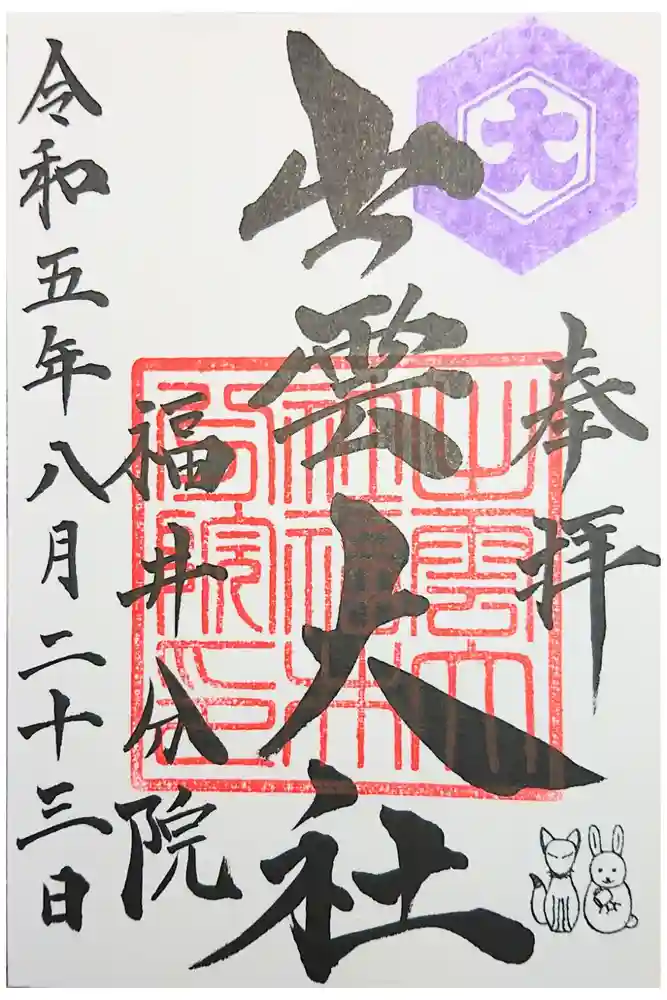 大
奉拝
出雲大社
出雲大
社福井
分院印
福井分院
令和五年八月二十三日